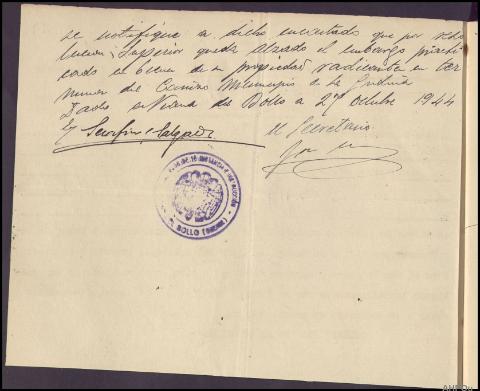 se notifique a dicho encartado que por reso
lucion Superior queda alzado el embargo practi
cado el bienes de su propiedad radicante en ter
mino del Municipio de la Gudiña
Dado en Viana del Bollo a 27 octubre 1944
Serafin Salgado
El Secretario
INSTANCIA E INSTRUCCIÓN
BOLLO (ORENSE)